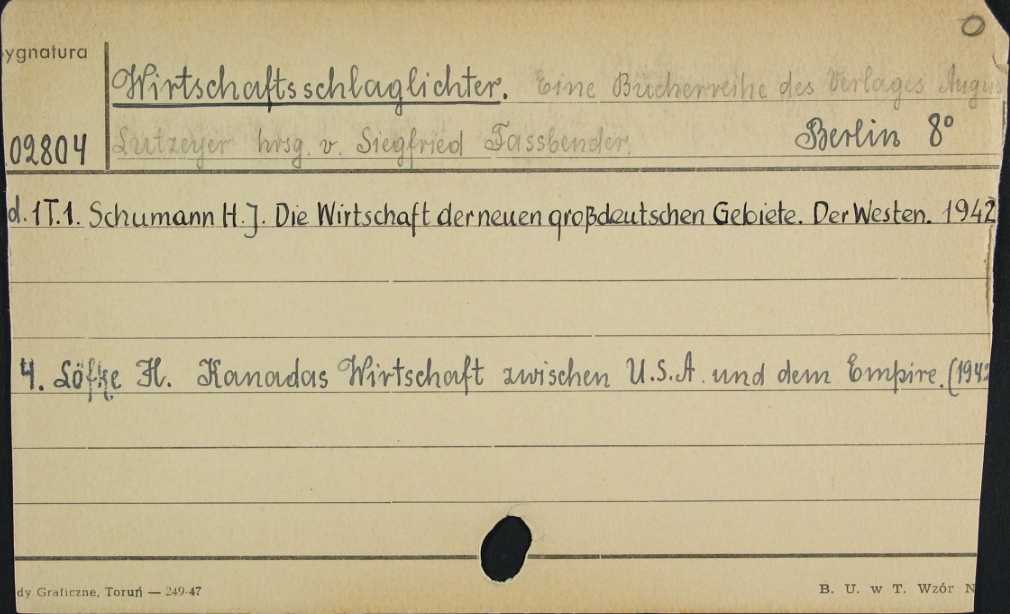 0
ygnatura
Wirtschaftsschlaglichter. Eine Bücherreihe des Verlages Augus
02804 Lutzeyer hrsg. v. Siegfried Fassbender. Berlin 8°
d. 1T.1. Schumann H.J. Die Wirtschaft der neuen großdeutschen Gebiete. Der Westen. 1942
4. Löffke H. Kanadas Wirtschaft zwischen U.S.A. und dem Empire. (1942
dy Graficzne, Toruń — 249-47 B. U. w T. Wzór N